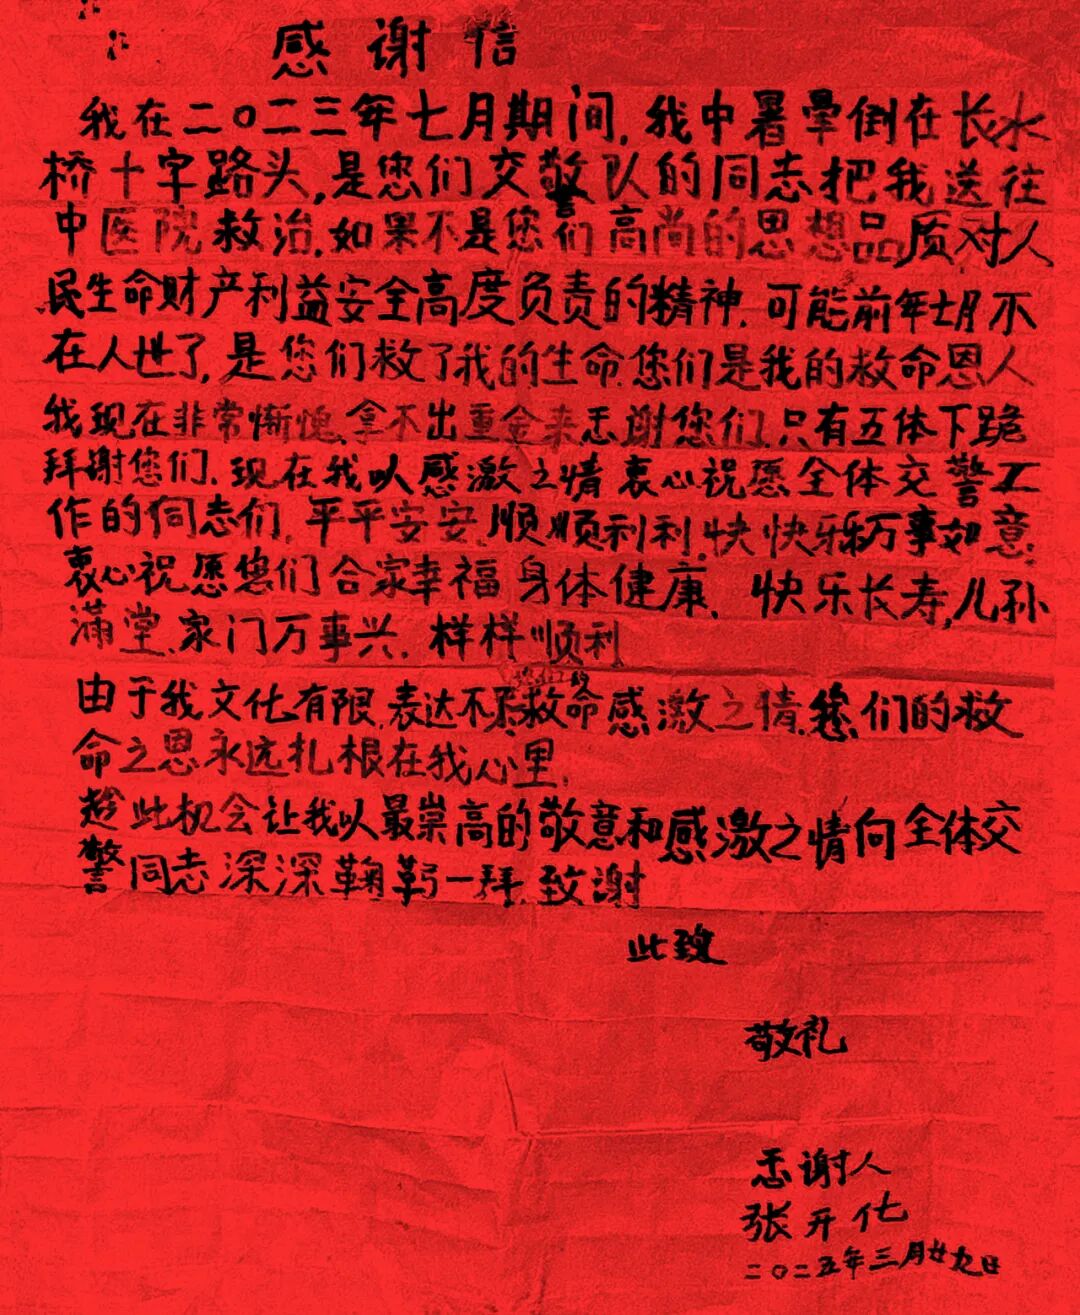 感谢信
我在二〇二三年七月期间,我中暑晕倒在长水
桥十字路头,是您们交警队的同志把我送往
中医院救治.如果不是您们高尚的思想品质对人
民生命财产利益安全高度负责的精神.可能前年七月不
在人世了,是您们救了我的生命.您们是我的救命恩人
我现在非常惭愧.拿不出重金来忎谢您们.只有五体下跪
拜谢您们.现在我以感激之情衷心祝愿全体交警工
作的同志们.平平安安.顺顺利利.快快乐乐万事如意.
衷心祝愿您们合家幸福身体健康.快乐长寿,儿孙
满堂.家门万事兴.样样顺利
由于我文化有限.表达不尽救命感激之情.您们的救
命之恩永远扎根在我心里.
趁此机会让我以最崇高的敬意和感激之情向全体交
警同志深深鞠躬一拜.致谢
此致
敬礼
忎谢人
张开化
二〇二五年三月廿九日